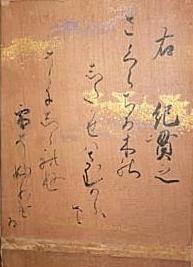 右　紀貫之
さくらちる木の
したかせはさむからて
そらにしられぬ
雪そふりける